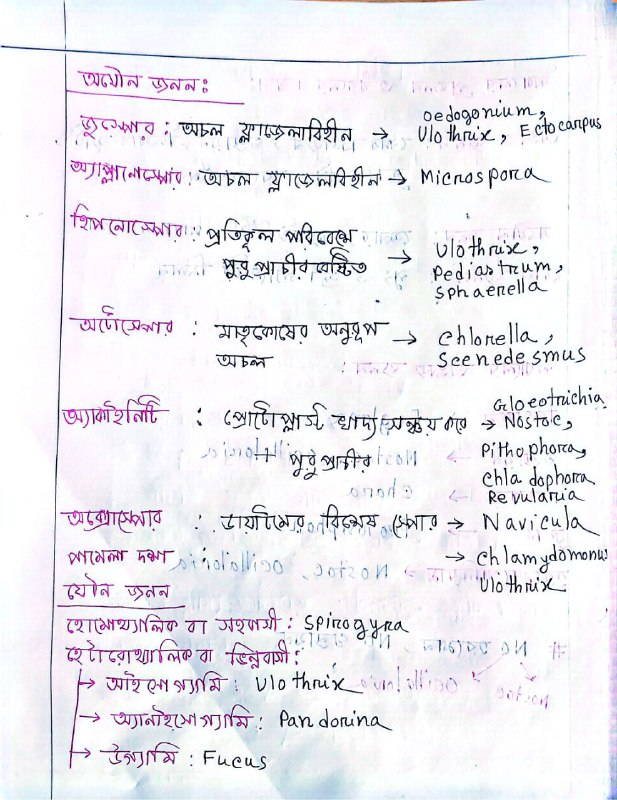 অযৌন জনন:
জুস্পোর : অচল ফ্লাজেলাবিহীন → Oedogonium, Ulothrix, Ectocarpus
অ্যাপ্লানোস্পোর : অচল ফ্লাজেলাবিহীন → Microspora
হিপনোস্পোর : প্রতিকূল পরিবেশে
পুরু প্রাচীর বেষ্টিত → Ulothrix,
Pediastrum,
Sphaerella
অটোস্পোর : মাতৃকোষের অনুরূপ → Chlorella,
অচল Scenedesmus
অ্যাকাইনিটি : প্রোটোপ্লাস্ট খাদ্য সঞ্চয় করে → Gloeotrichia, Nostoc,
+ পুরু প্রাচীর Pithophora,
Chladophora
Revularia
অক্সোস্পোর : ডায়াটমের বিশেষ স্পোর → Navicula
পামেলা দশা : → Chlamydomonus
Ulothrix
যৌন জনন
হোমোথ্যালিক বা সহবাসী : Spirogyra
হেটারোথ্যালিক বা ভিন্নবাসী :
→ আইসোগ্যামি : Ulothrix
→ অ্যানাইসোগ্যামি : Pandorina
→ উগ্যামি : Fucus